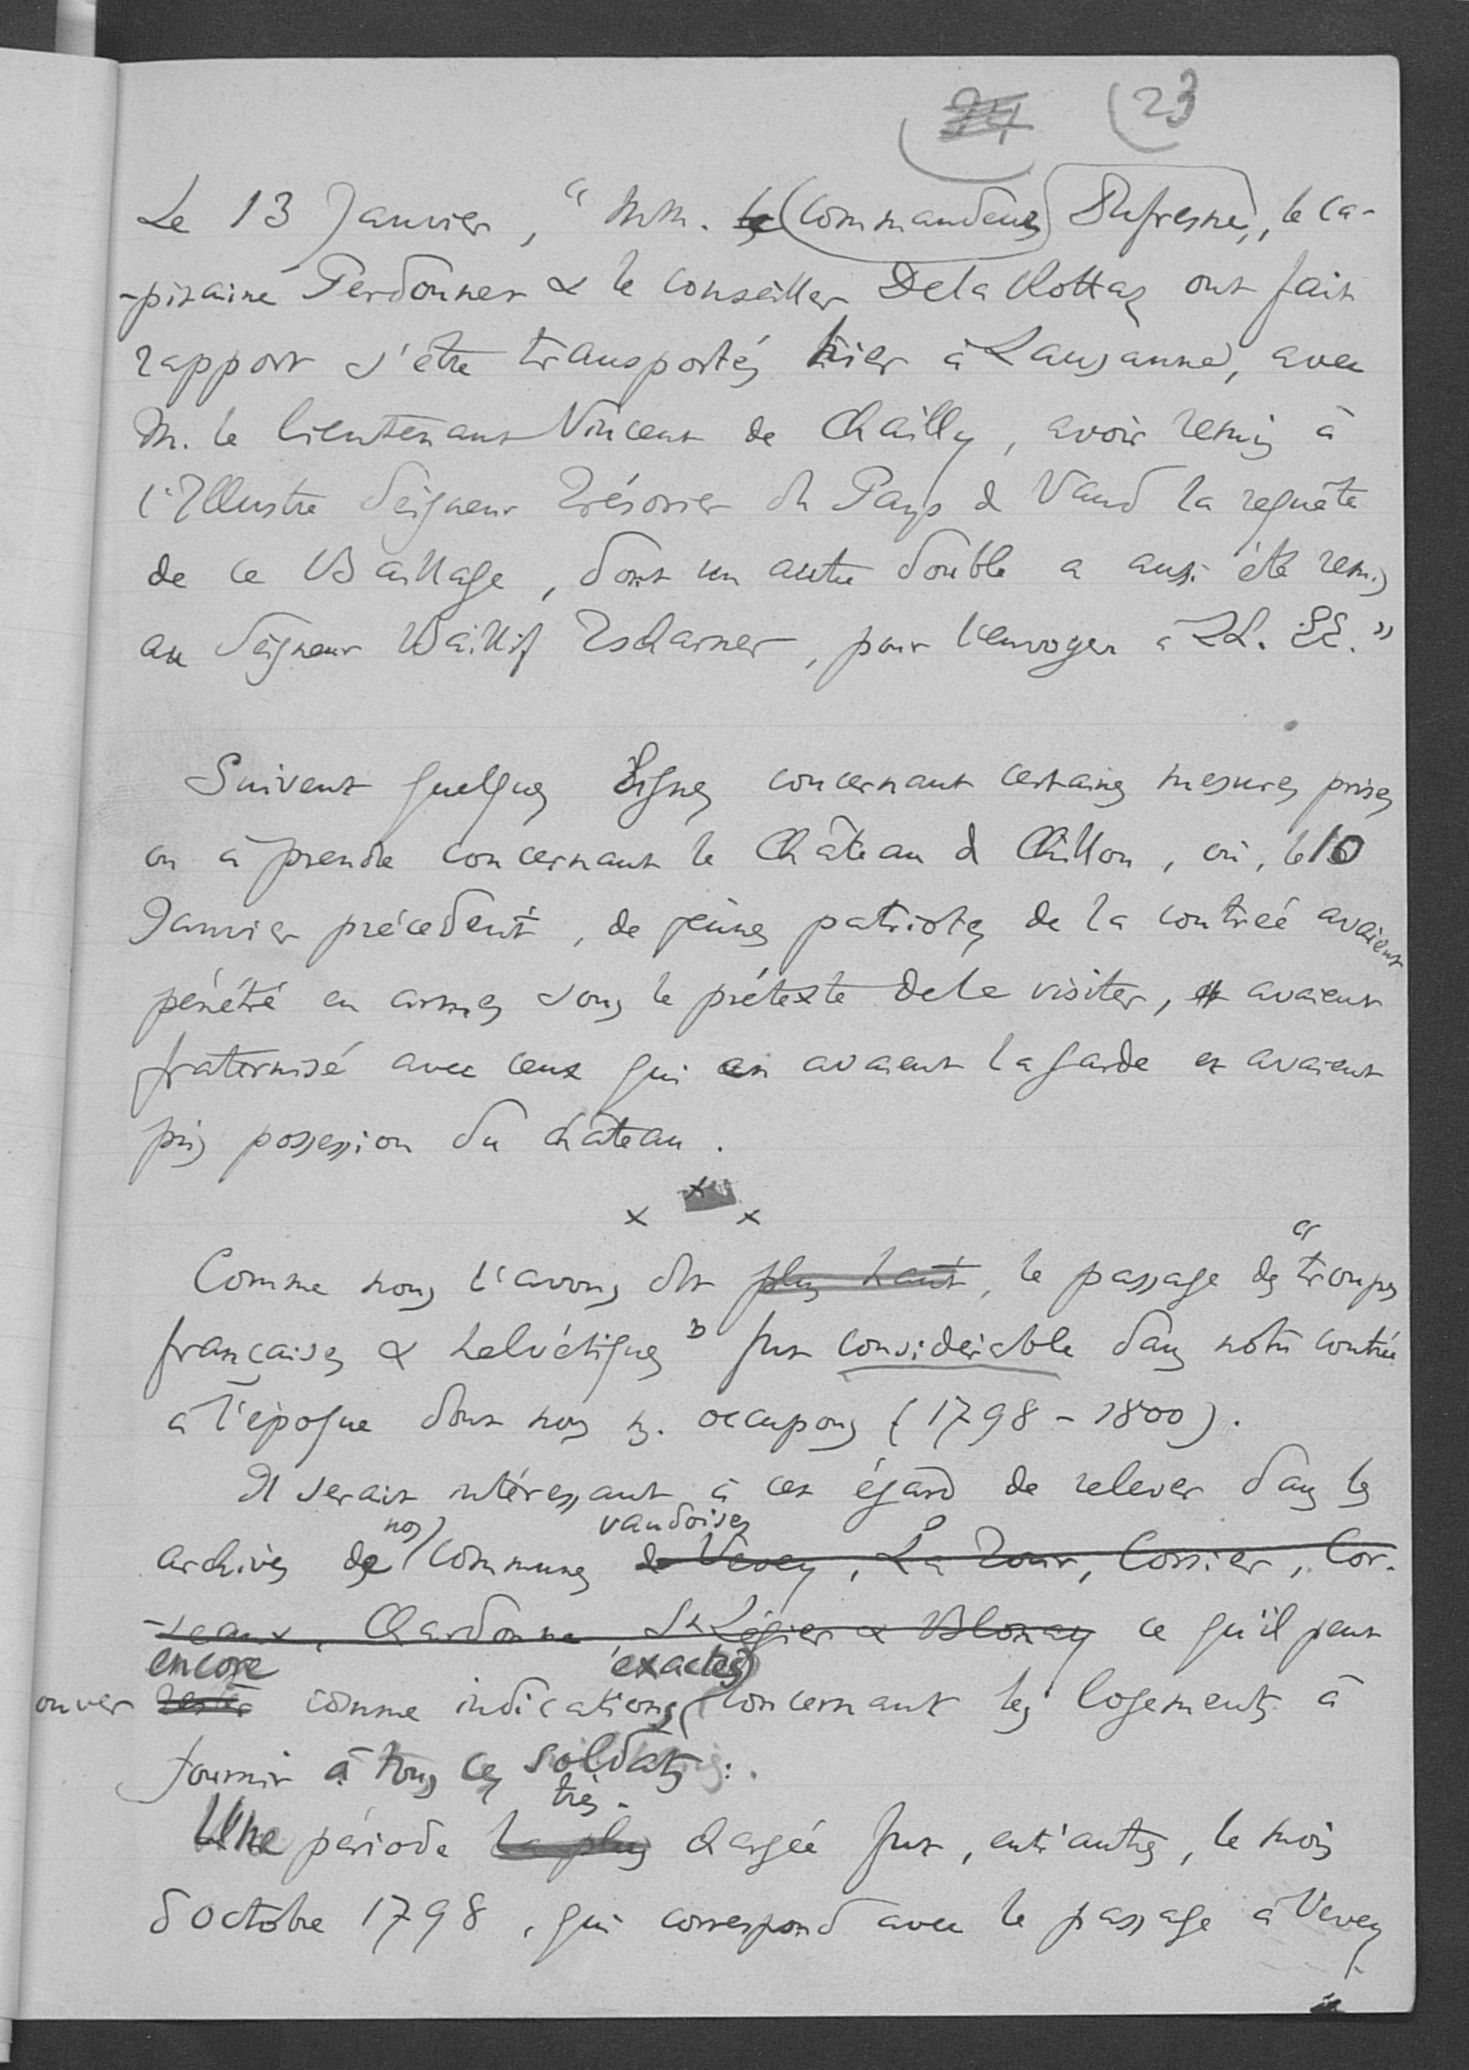 24 23
Le 13 Janvier, " MM. le Commandeur Dufresne, le ca-
-pitaine Perdonner & le conseiller De la Rottaz ont fait
rapport s'être transportés hier à Lausanne, avec
M. le lieutenant Vincent de Chailly, avoir remis à
l'Illustre Seigneur Trésorier du Pays de Vaud la requête
de ce Baillage, dont un autre double a aussi été remis
au Seigneur Baillif Tscharner, pour l'envoyer à LL. EE."
Suivent quelques lignes concernant certaines mesures prises
ou à prendre concernant le Château de Chillon, où, le 10
Janvier précédent, de jeunes patriotes de la contrée avaient
pénétré en armes sous le prétexte de le visiter, avaient
fraternisé avec ceux qui en avaient la garde et avaient
pris possession du château.
x x x
Comme nous l'avons dit plus haut, le passage des "troupes
françaises & helvétiques" fut considérable dans notre contrée
à l'époque dont nous n. occupons (1798 - 1800).
Il serait intéressant à cet égard de relever dans les
nos vaudoises
archives de communes de Vevey, La Tour, Corsier, Cor-
-seaux, Chardonne, St Légier & Blonay ce qu'il peut
encore exactes
ouver rester comme indications concernant les logements à
fournir à tous ces soldats.
très
Une période la plus chargée fut, entr'autres, le mois
d'octobre 1798, qui correspond avec le passage à Vevey